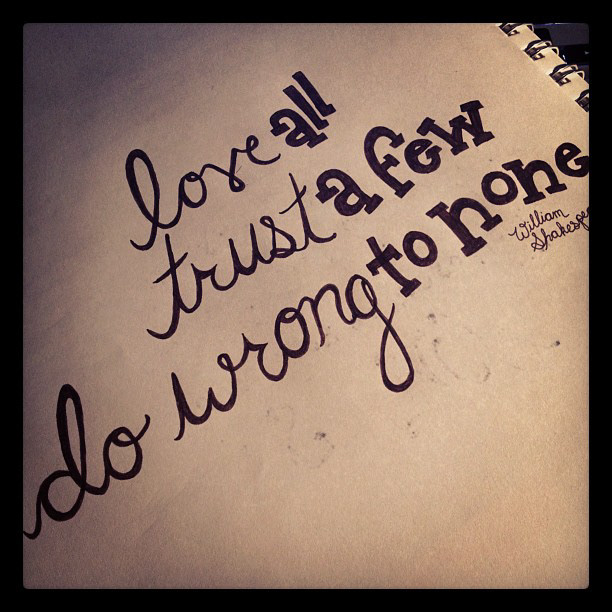 love all
trust a few
do wrong to none
William